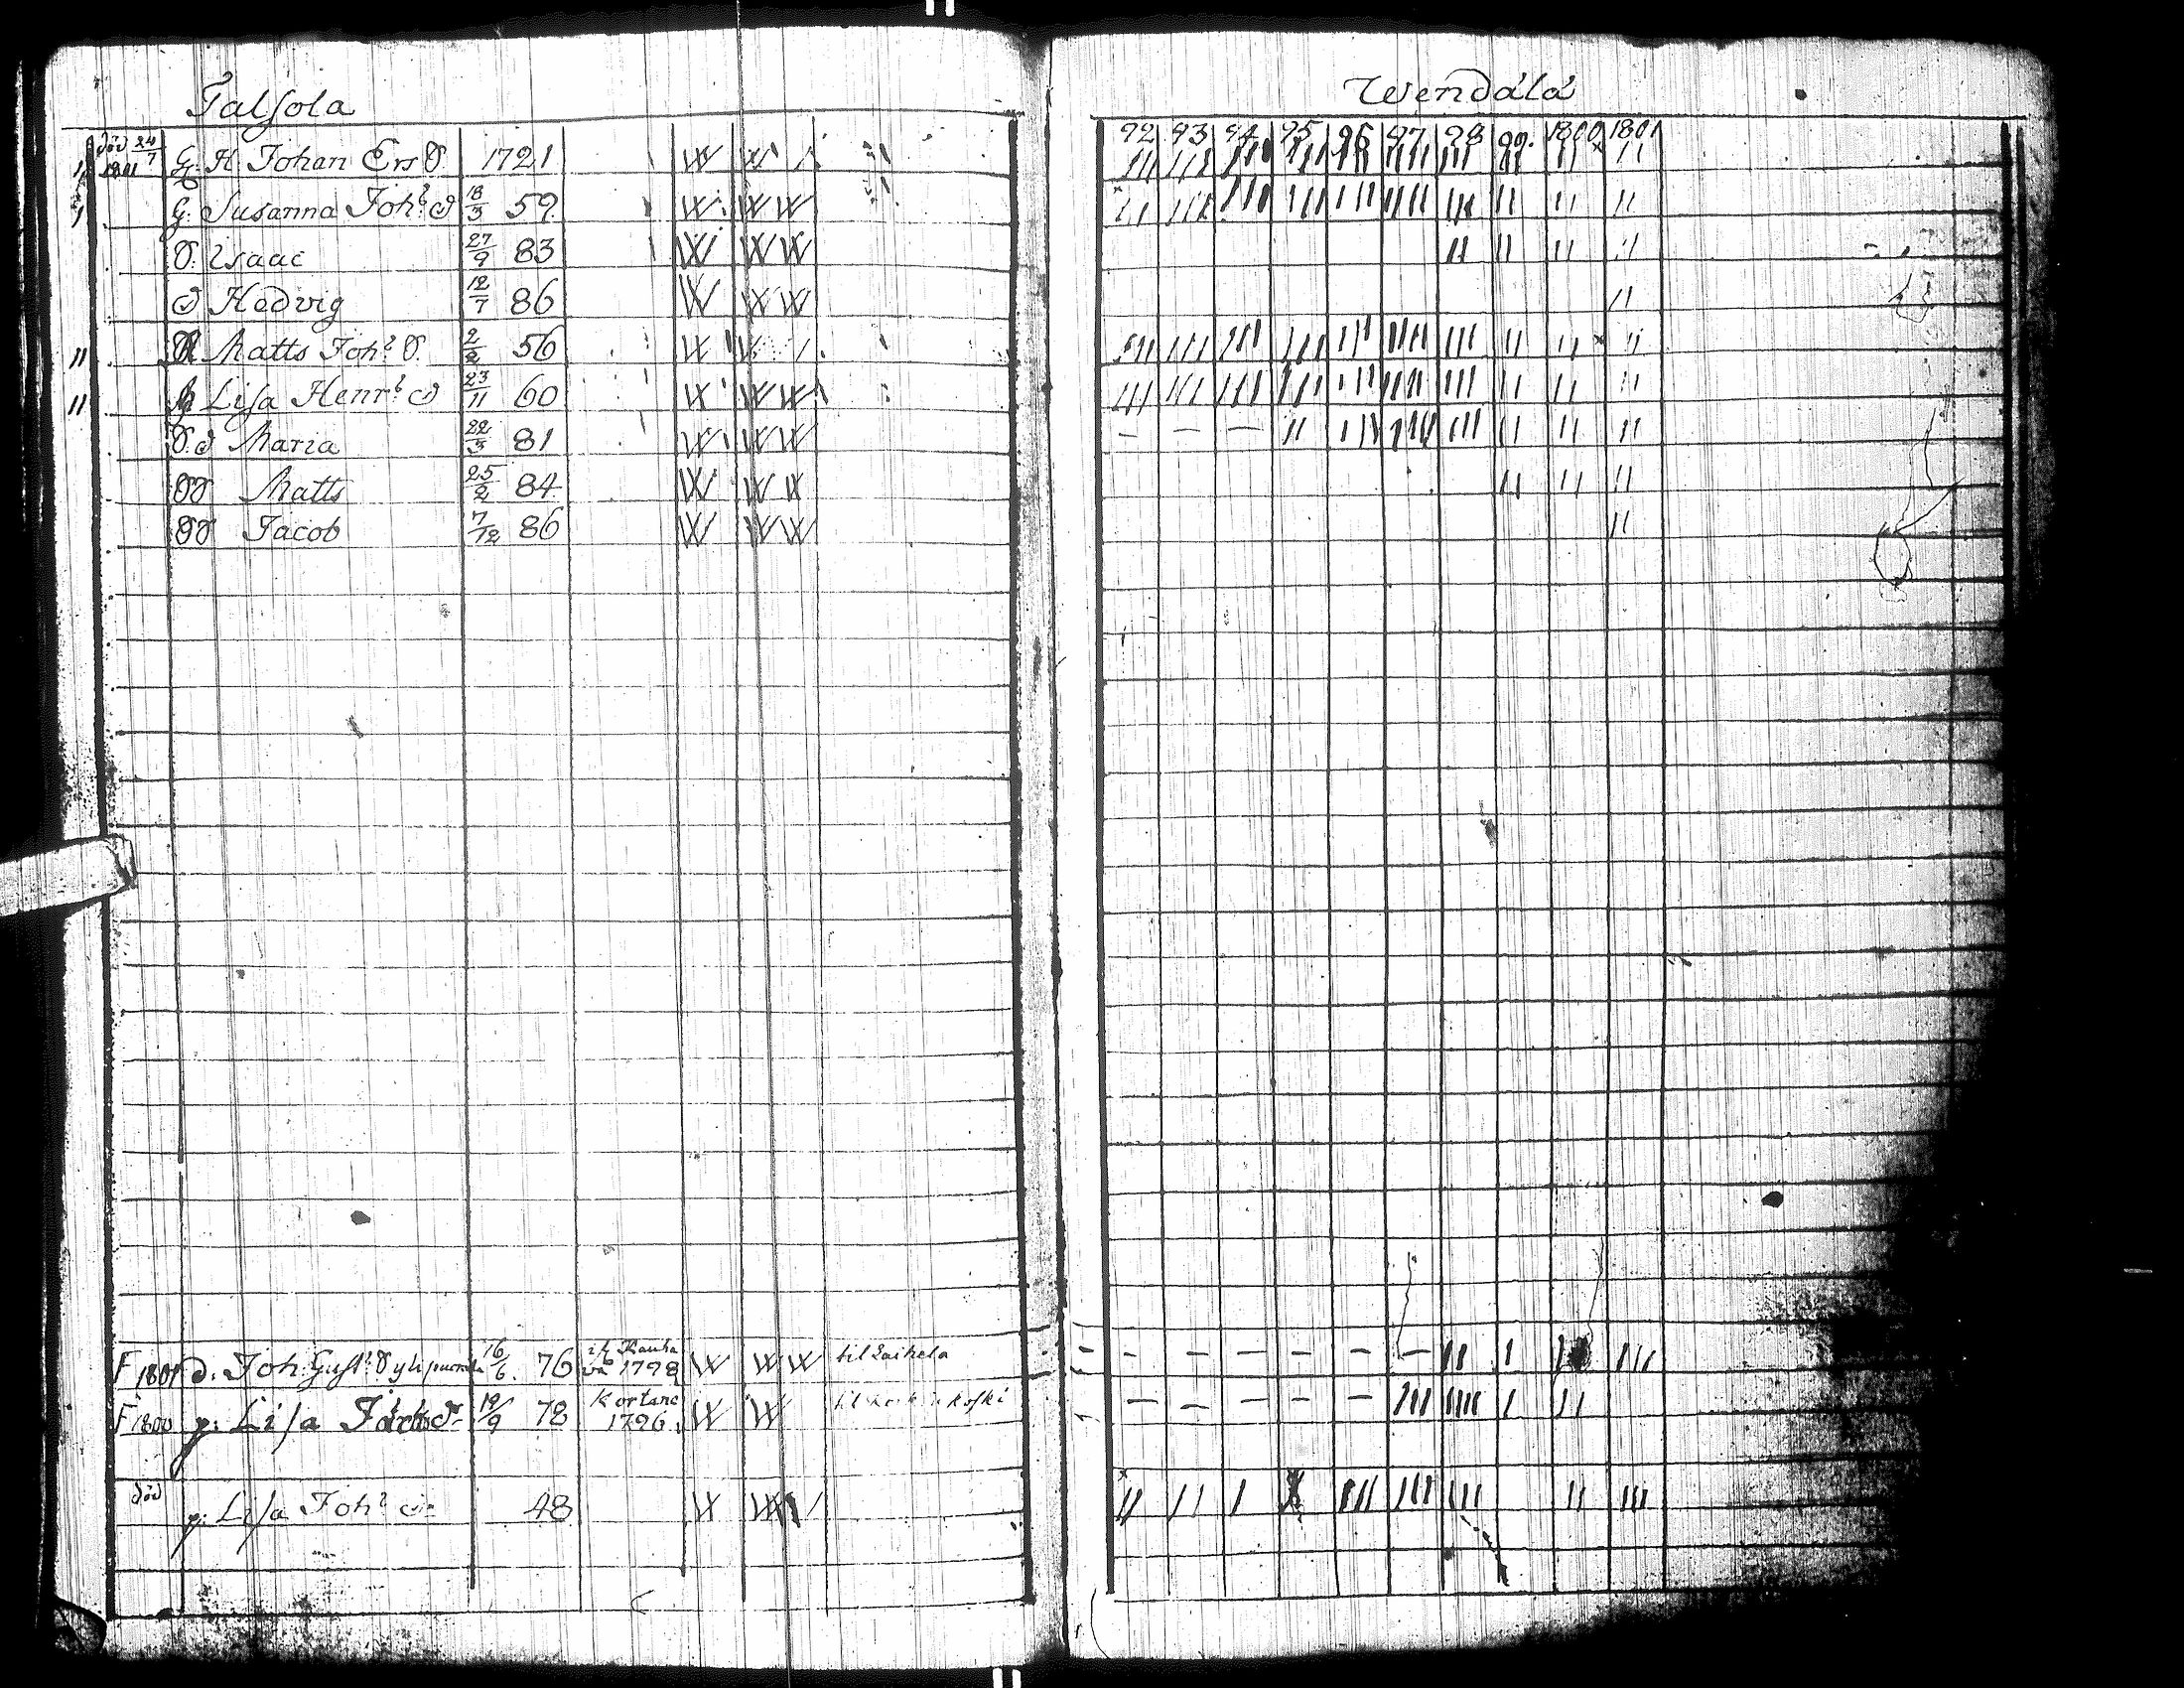 Talsola
Wendälä
92 93 94 95 96 97 98 99. 1800 1801
död 24/7 1801 G: H. Johan Ers S. 1721
G: Susanna Joh: d 18/3 59.
S. Isaac 27/9 83
d Hedvig 12/7 86
Matts Joh: S. 2/2 56
h Lisa Henr: d 23/11 60
S. d Maria 22/3 81
SS Matts 25/2 84
SS Jacob 7/12 86
F 1801 d. Joh: Gust: 16/6. 76 1798 til Laihela
F 1800 p: Lisa 19/9 78 Kortane 1796. til
död p: Lisa Joh: d: 48